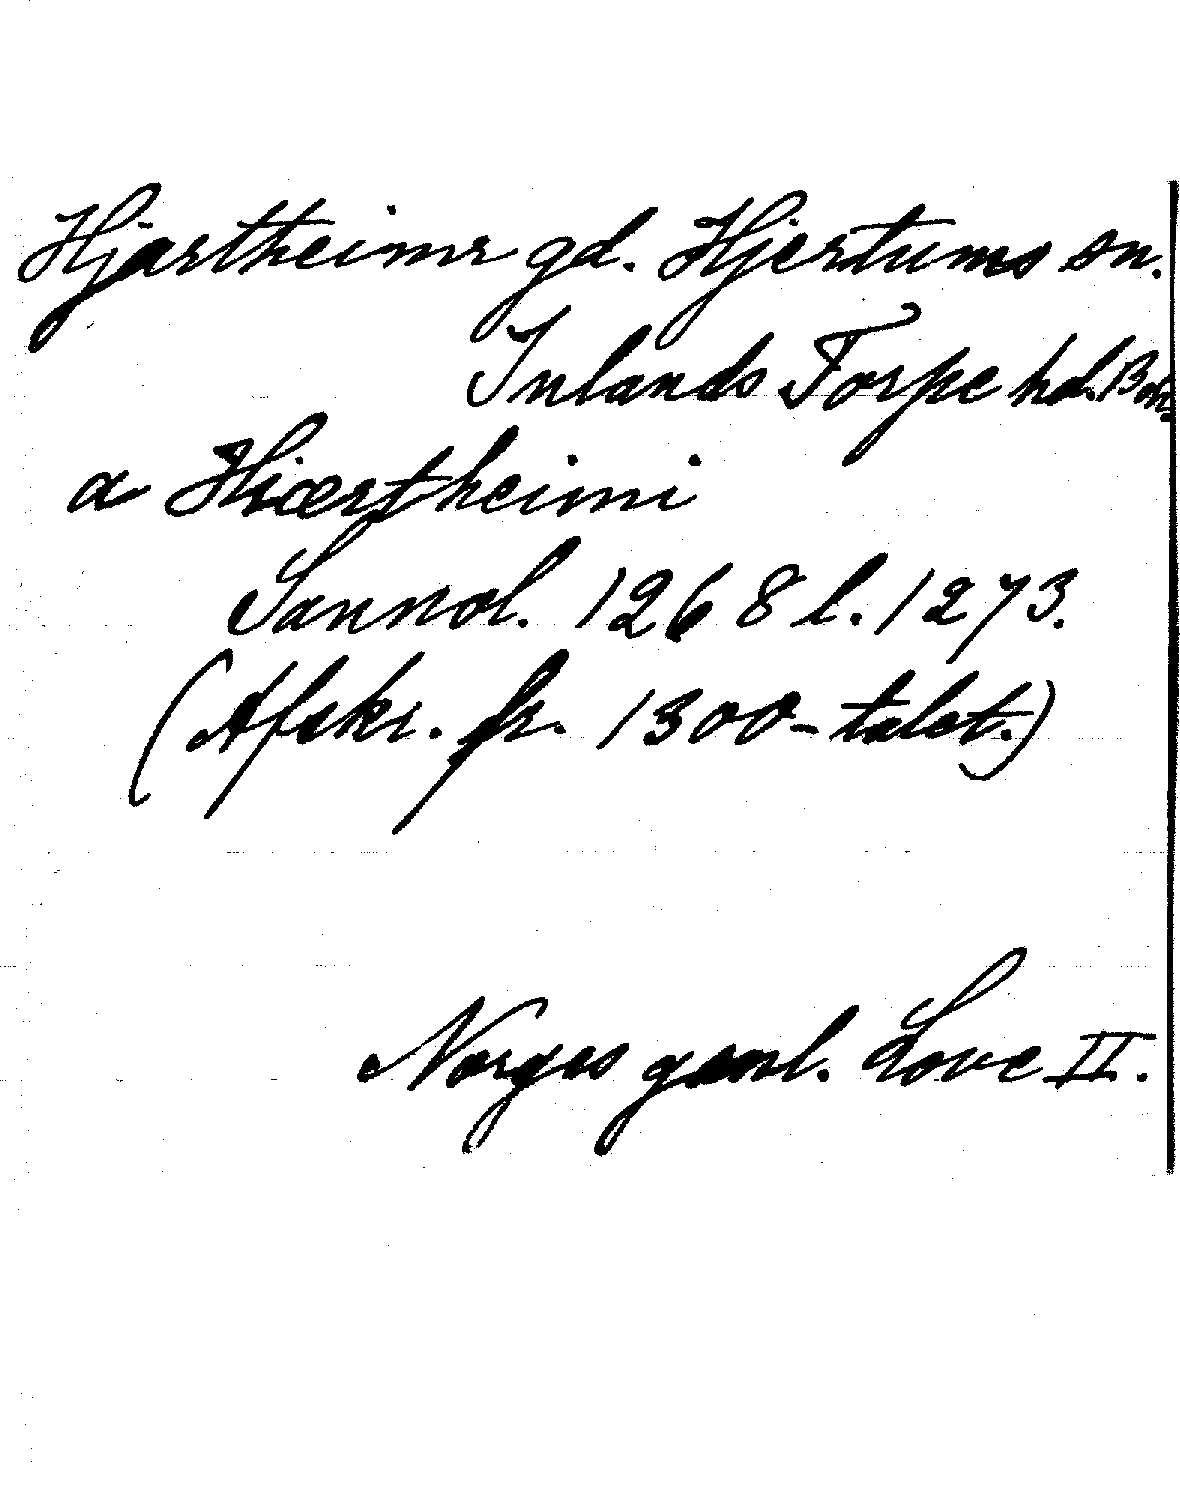 Hjartheimr gd. Hjertums sn.
Inlands Torpe hd. Boh.
a Hiærtheimi
Sannol. 1268 l. 1273.
(Afskr. fr. 1300-talet.)
Norges gaml. Love II.